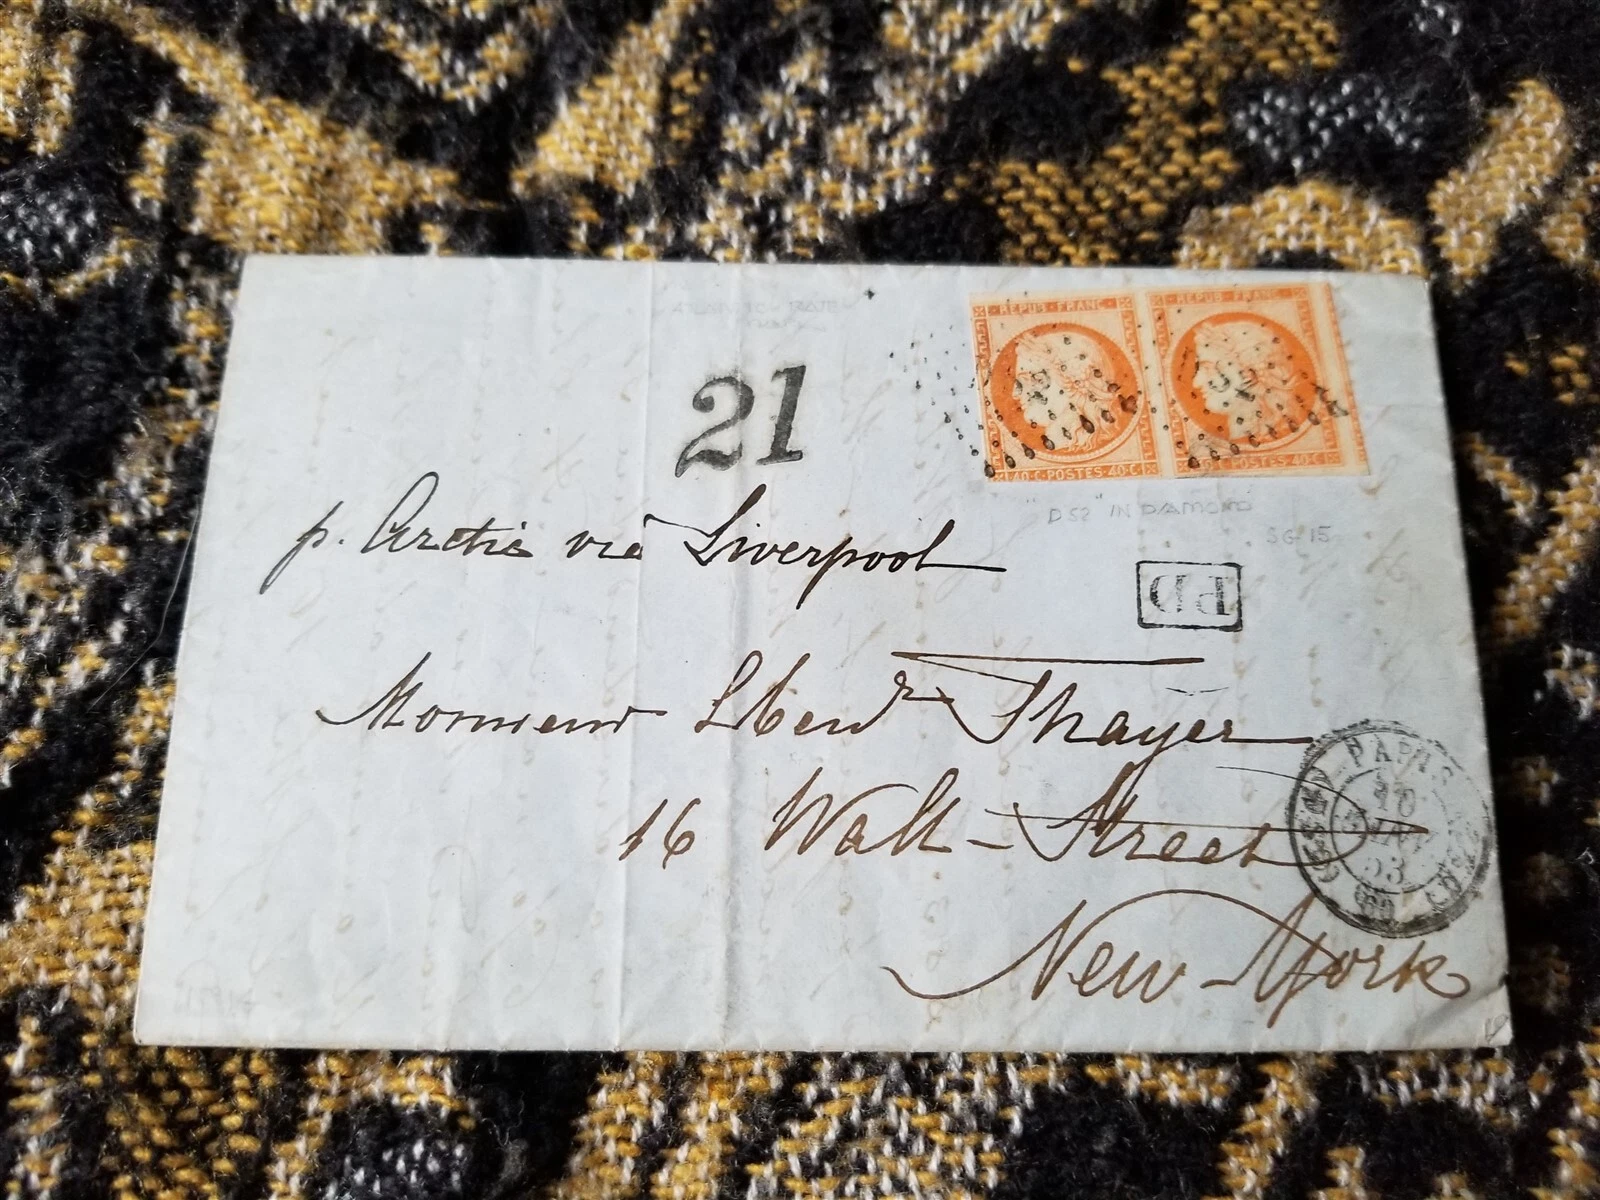 REPUB·FRANC· REPUB·FRANC·
21
40·C·POSTES·40·C· 40·C·POSTES·40·C
"DS2" IN DIAMOND
SG 15
p. Arctic viâ Liverpool
PD
Monsieur Thayer
16 Wall-Street
PARIS
53
(60)
New-York